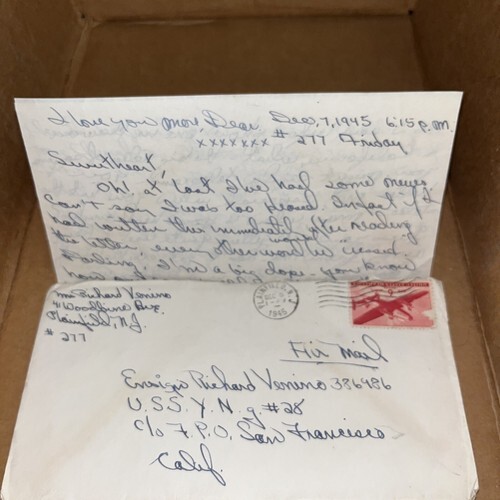 I love you more, Dear Dec, 7, 1945 6:15 p.m.
xxxxxxx # 277 Friday
Sweetheart,
Oh! at last I've had some news,
can't say I was too pleased. Infact if I
had written this immediatly after reading
the letter, every other word would be "cussed.
Darling, I'm a big dope - you know
now
Mrs. Richard Venino
Woodbine Ave,
Plainfield, N.J.
# 277
PLAINFIELD
DEC
1945
Air Mail
Ensign Richard Venino 386486
U.S.S. Y. N. g. #28
c/o F.P.O. San Francisco
Calif.